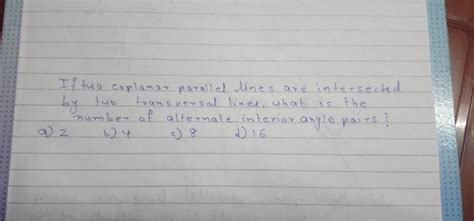 If two coplanar parallel lines are intersected
by two transversal lines, what is the
number of alternate interior angle pairs?
a) 2 b) 4 c) 8 d) 16